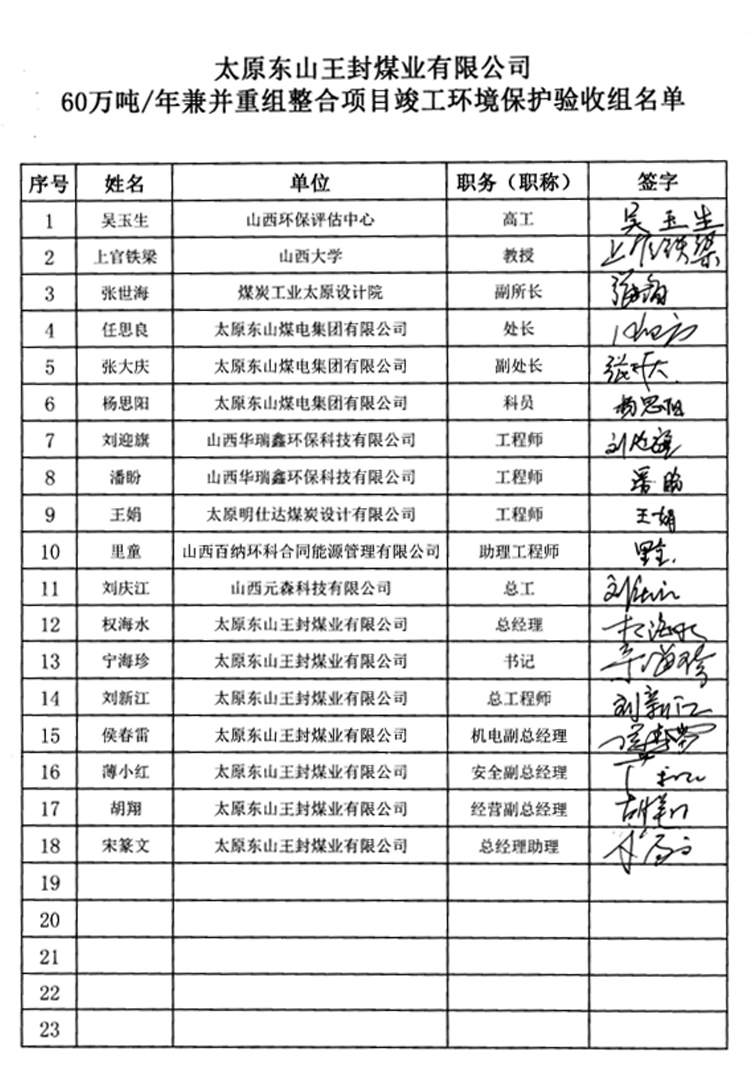 太原东山王封煤业有限公司
60万吨/年兼并重组整合项目竣工环境保护验收组名单
序号 姓名 单位 职务（职称） 签字
1 吴玉生 山西环保评估中心 高工 吴玉生
2 上官铁梁 山西大学 教授 上官铁梁
3 张世海 煤炭工业太原设计院 副所长
4 任思良 太原东山煤电集团有限公司 处长
5 张大庆 太原东山煤电集团有限公司 副处长
6 杨思阳 太原东山煤电集团有限公司 科员 杨思阳
7 刘迎旗 山西华瑞鑫环保科技有限公司 工程师 刘迎旗
8 潘盼 山西华瑞鑫环保科技有限公司 工程师 潘盼
9 王娟 太原明仕达煤炭设计有限公司 工程师 王娟
10 里童 山西百纳环科合同能源管理有限公司 助理工程师 里童
11 刘庆江 山西元森科技有限公司 总工
12 权海水 太原东山王封煤业有限公司 总经理 权海水
13 宁海珍 太原东山王封煤业有限公司 书记 宁海珍
14 刘新江 太原东山王封煤业有限公司 总工程师 刘新江
15 侯春雷 太原东山王封煤业有限公司 机电副总经理 侯春雷
16 薄小红 太原东山王封煤业有限公司 安全副总经理
17 胡翔 太原东山王封煤业有限公司 经营副总经理 胡翔
18 宋篆文 太原东山王封煤业有限公司 总经理助理
19
20
21
22
23